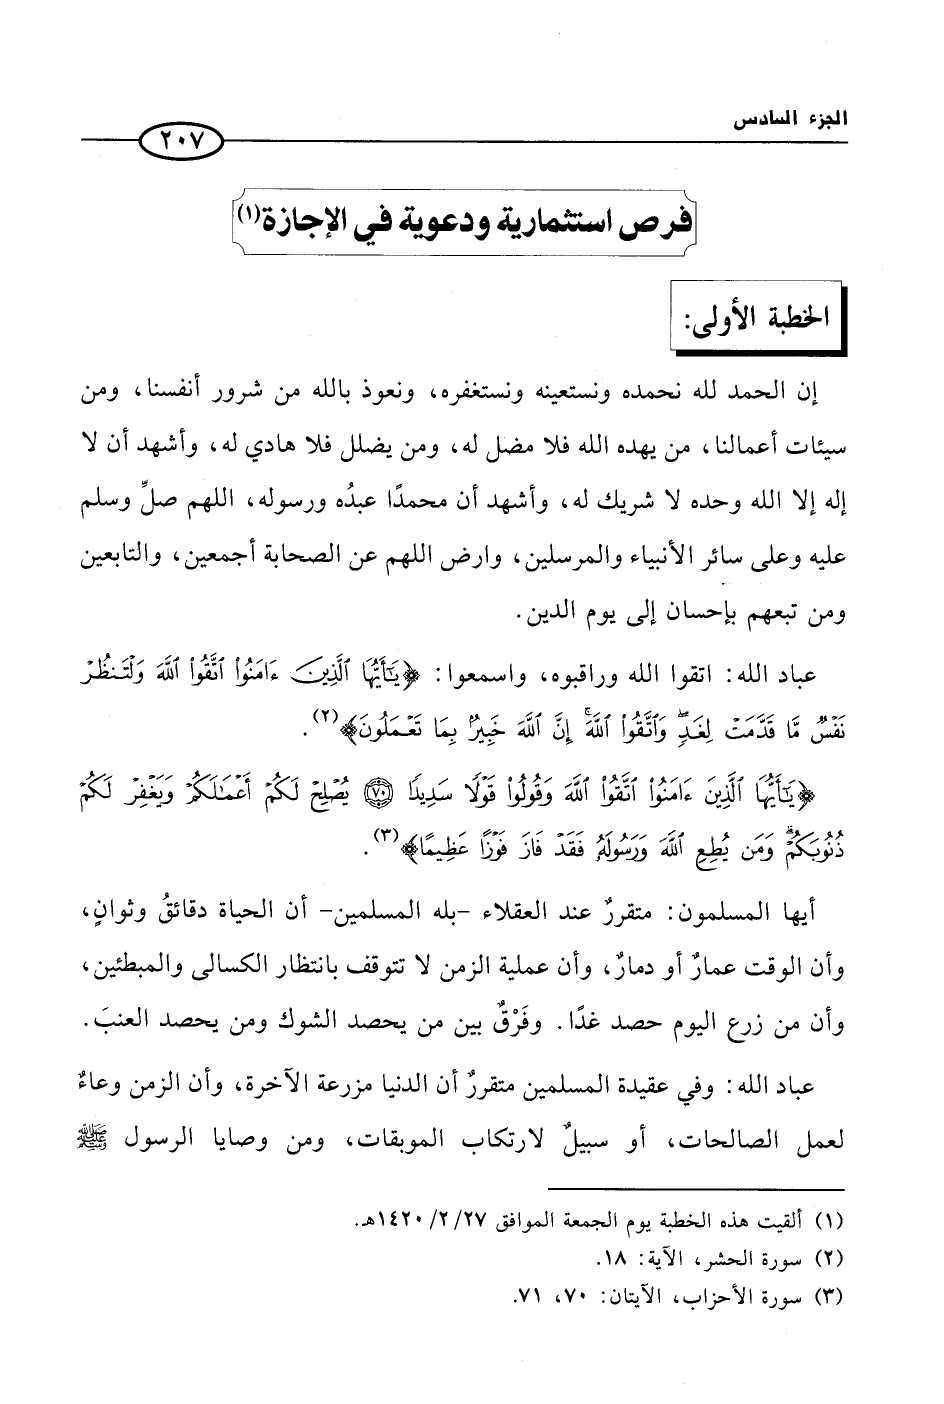 الجزء السادس
٢٠٧
فرص استثمارية ودعوية في الإجازة(١)
الخطبة الأولى:
إن الحمد لله نحمده ونستعينه ونستغفره، ونعوذ بالله من شرور أنفسنا، ومن
سيئات أعمالنا، من يهده الله فلا مضل له، ومن يضلل فلا هادي له، وأشهد أن لا
إله إلا الله وحده لا شريك له، وأشهد أن محمدًا عبدُه ورسوله، اللهم صلِّ وسلم
عليه وعلى سائر الأنبياء والمرسلين، وارض اللهم عن الصحابة أجمعين، والتابعين
ومن تبعهم بإحسان إلى يوم الدين.
عباد الله: اتقوا الله وراقبوه، واسمعوا: ﴿يَٰٓأَيُّهَا ٱلَّذِينَ ءَامَنُوا۟ ٱتَّقُوا۟ ٱللَّهَ وَلْتَنظُرْ
نَفْسٌ مَّا قَدَّمَتْ لِغَدٍ ۖ وَٱتَّقُوا۟ ٱللَّهَ ۚ إِنَّ ٱللَّهَ خَبِيرٌۢ بِمَا تَعْمَلُونَ﴾(٢).
﴿يَٰٓأَيُّهَا ٱلَّذِينَ ءَامَنُوا۟ ٱتَّقُوا۟ ٱللَّهَ وَقُولُوا۟ قَوْلًا سَدِيدًا ٧٠ يُصْلِحْ لَكُمْ أَعْمَٰلَكُمْ وَيَغْفِرْ لَكُمْ
ذُنُوبَكُمْ ۗ وَمَن يُطِعِ ٱللَّهَ وَرَسُولَهُۥ فَقَدْ فَازَ فَوْزًا عَظِيمًا﴾(٣).
أيها المسلمون: متقررٌ عند العقلاء -بله المسلمين- أن الحياة دقائقُ وثوانٍ،
وأن الوقت عمارٌ أو دمارٌ، وأن عملية الزمن لا تتوقف بانتظار الكسالى والمبطئين،
وأن من زرع اليوم حصد غدًا. وفَرْقٌ بين من يحصد الشوك ومن يحصد العنبَ.
عباد الله: وفي عقيدة المسلمين متقررٌ أن الدنيا مزرعة الآخرة، وأن الزمن وعاءٌ
لعمل الصالحات، أو سبيلٌ لارتكاب الموبقات، ومن وصايا الرسول ﷺ
(١) ألقيت هذه الخطبة يوم الجمعة الموافق ٢٧/ ٢/ ١٤٢٠هـ.
(٢) سورة الحشر، الآية: ١٨.
(٣) سورة الأحزاب، الآيتان: ٧٠، ٧١.